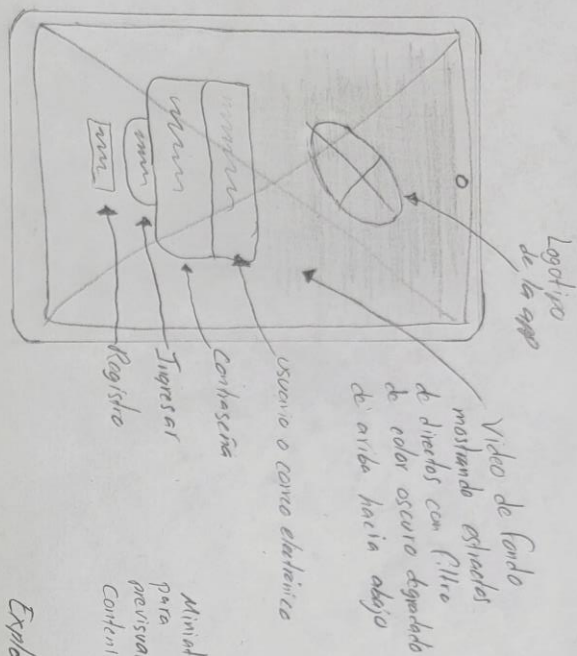 Logotivo
de la app
Video de fondo
mostrando estractos
de directos con filtro
de color oscuro degradado
de arriba hacia abajo
usuario o correo electrónico
contraseña
Ingresar
Registro
Miniat
para
previsua
Conteni
Explo